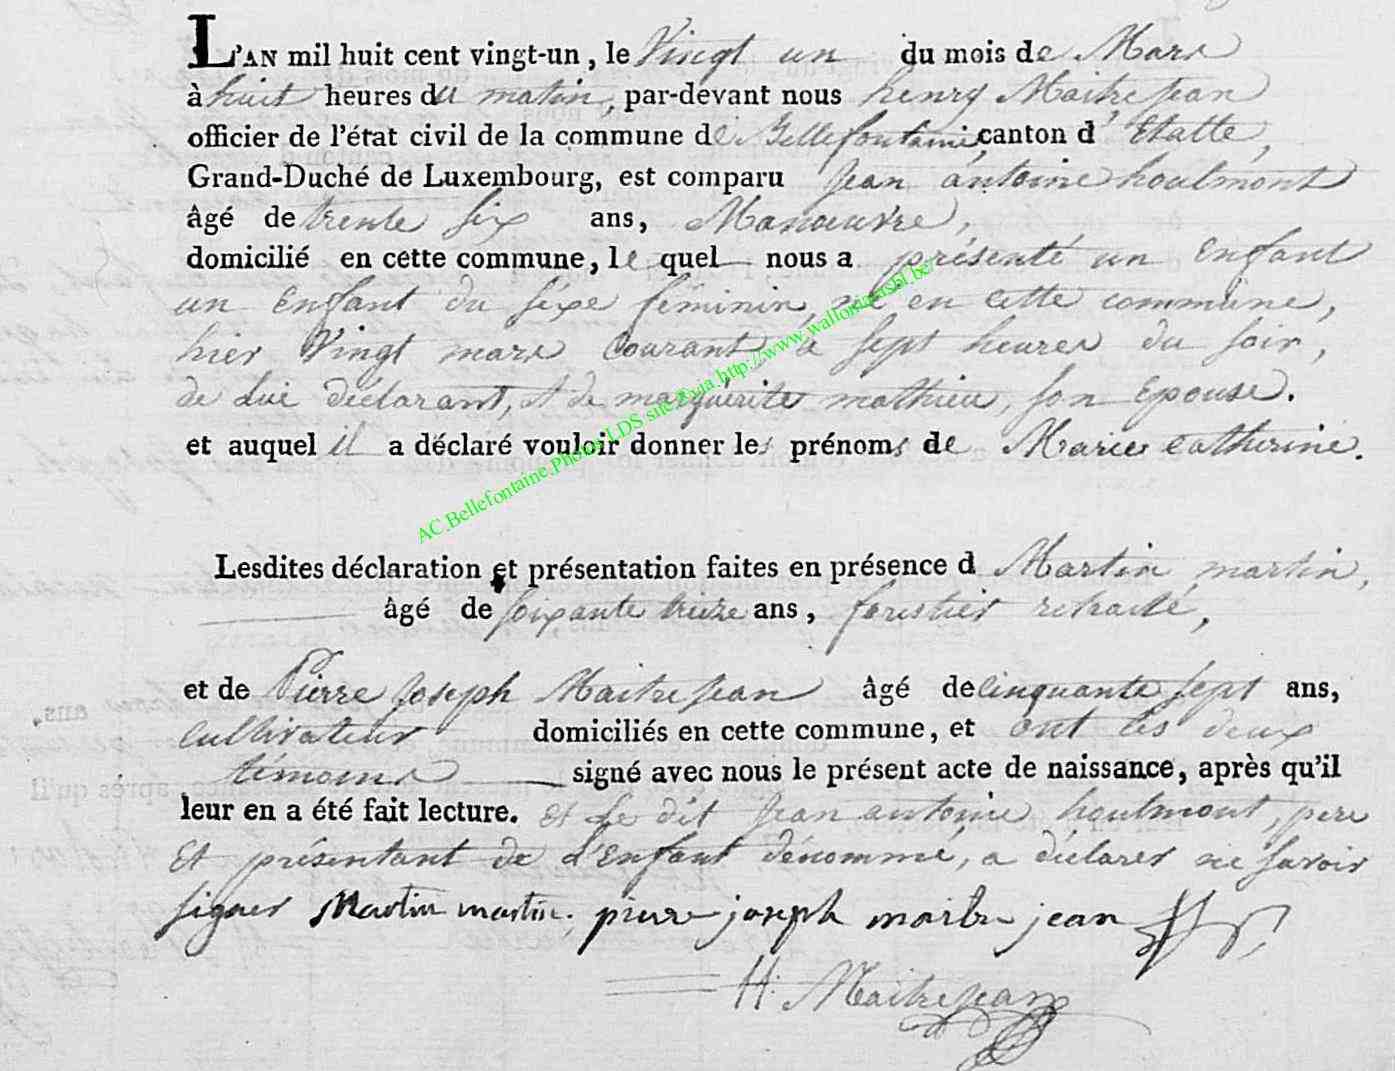 L'AN mil huit cent vingt-un, le Vingt un du mois de Mars
à huit heures du matin, par-devant nous henry Maitrejean
officier de l'état civil de la commune de Bellefontaine, canton d'Etalle,
Grand-Duché de Luxembourg, est comparu Jean antoine houlmont
âgé de trente six ans, Manœuvre,
domicilié en cette commune, le quel nous a présenté un Enfant
un Enfant du sexe féminin, né en cette commune,
hier Vingt mars Courant, à sept heures du soir,
de Lui déclarant, et de marguerite mathieu, son Epouse.
et auquel il a déclaré vouloir donner les prénoms de Marie Catherine.
AC.Bellefontaine.Photos LDS site via http://www.wallonia-asbl.be/
Lesdites déclaration et présentation faites en présence d Martin martin,
âgé de soixante treize ans, forestier retraité,
et de Pierre Joseph Maitrejean âgé de Cinquante sept ans,
Cultivateur domiciliés en cette commune, et ont les deux
témoins signé avec nous le présent acte de naissance, après qu'il
leur en a été fait lecture. et Le dit Jean antoine houlmont, pere
Et présentant de L'Enfant dénommé, a déclarer ne savoir
signer Martin martin. pierre joseph maitre jean
H. Maitrejean